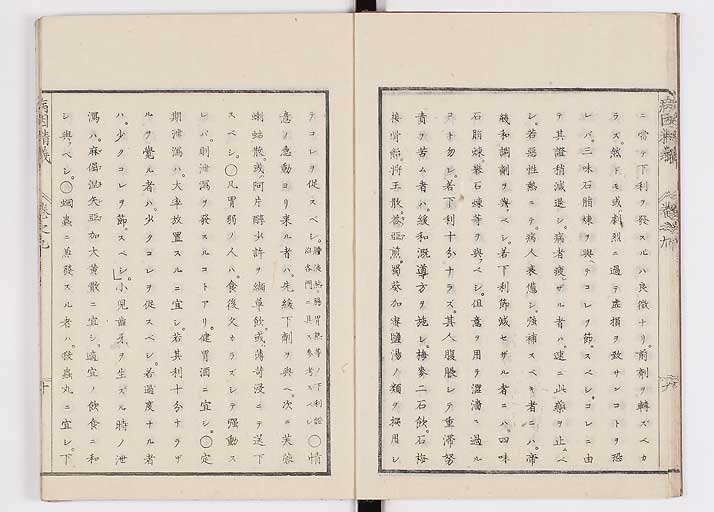 ニ常テ下利ヲ發スルハ良徴ナリ。前劑ヲ轉ズベカ
ラズ。然ドモ或ハ劇烈ニ過テ虚損ヲ致サンコトヲ恐
レバ。三味石脂煉ヲ與テコレヲ節スベシ。コレニ由
テ其證稍減退シ。病者疲ザル者ハ。速ニ此藥ヲ止ムベ
シ。若惡性熱ニテ。病人衰憊シ。強補スベキ者ニハ。帝
緩和調劑ヲ與ベシ。若下利節減セザル者ニハ。四味
石脂煉。礬石煉等ヲ與ベシ。但意ヲ用テ澀滯ニ過ル
コト勿レ。若下利十分ナラズ。其人腹脹シテ重滯努
責ヲ苦ム者ハ。緩和漑導方ヲ施シ梅麥二石飲石梅
接骨飴。將王散養亞煎。蜀葵加瀉鹽湯ノ類ヲ撰用シ
テコレヲ促スベシ。膽液熱。腸胃熱等ノ下利證治各門ニ具ス參考スベシ ○情
意ノ急動ヨリ来ル者ハ。先緩下劑ヲ與ヘ。次ニ芙蓉
蝲蛄散。或ハ阿片醇少許ヲ纈草飲。或ハ薄荷浸ニテ送下
スベシ。○凡胃弱ノ人ハ。食後久カラズシテ強動ス
レバ。則泄瀉ヲ發スルコトアリ。健胃酒ニ宜シ。○定
期泄瀉ハ。大率放置スルニ宜シ。若其利十分ナラザ
ルヲ覺ル者ハ。少クコレヲ促スベシ。若過度ナル者
ハ。少クコレヲ節スベシ。○小兒齒牙ヲ生ズル時ノ泄
瀉ハ。麻倔涅矢亞加大黄散ニ宜シ。適宜ノ飲食ニ和
シ與ベシ。○蛔蟲ニ兼發スル者ハ。殺蟲丸ニ宜シ。下
病因精義
巻之九
十